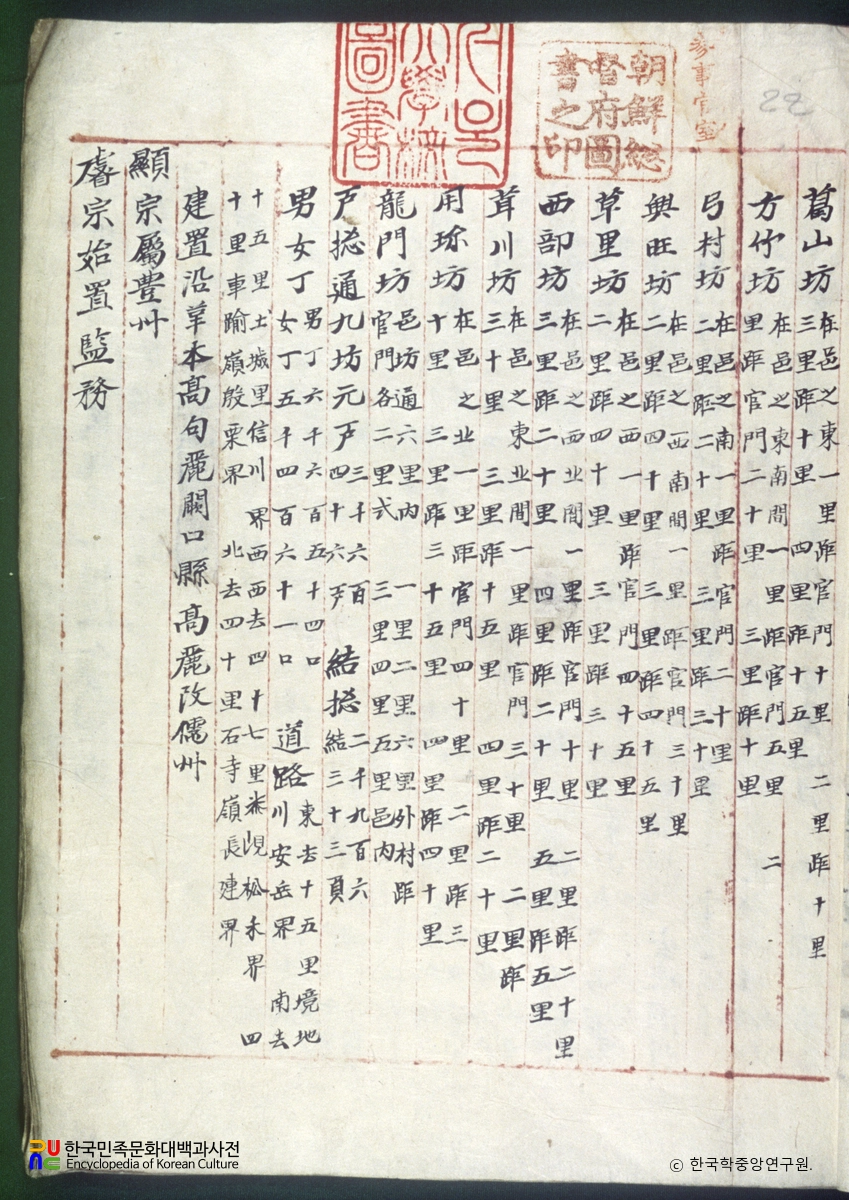 參事官室
22
朝鮮總
督府圖
書之印
大學校
圖書
葛山坊 在邑之東一里距官門十里 二里距十里
三里距十里 四里距十五里
方竹坊 在邑之東南間一里距官門五里 二
里距官門二十里 三里距十里
弓村坊 在邑之南一里距官門二十里
二里距二十里 三里距三十里
興旺坊 在邑之西南間一里距官門三十里
二里距四十里 三里距四十五里
草里坊 在邑之西一里距官門四十五里
二里距四十里 三里距三十里
西部坊 在邑之西北間一里距官門十里 二里距二十里
三里距二十里 四里距二十里 五里距五里
茸川坊 在邑之東北間一里距官門三十里 二里距
三十里 三里距十五里 四里距二十里
用珎坊 在邑之北一里距官門四十里 二里距三
十里 三里距三十五里 四里距四十里
龍門坊 邑坊通六里內 一里二里六里外村距
官門各二里式 三里四里五里邑內
戶摠通九坊元戶 三千六百
四十六戶 結摠 二千九百六
結三十三負
男女丁 男丁六千六百五十四口
女丁五千四百六十一口 道路 東去十五里境地
川安岳界 南去
十五里土城里信川界西西去四十七里 峴松禾界 四
十里車踰嶺殷栗界 北去四十里石寺嶺長連界
建置沿革本高句麗闕口縣高麗改儒州
顯宗屬豊州
睿宗始置監務
한국민족문화대백과사전
Encyclopedia of Korean Culture
© 한국학중앙연구원.